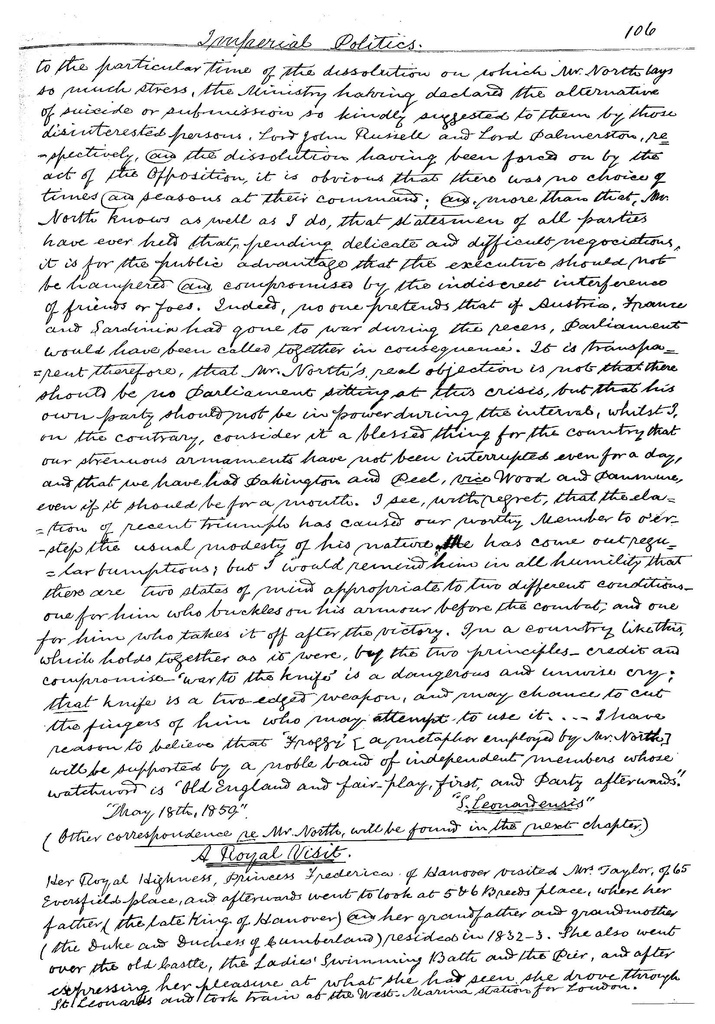 Imperial Politics.
106
to the particular time of the dissolution on which Mr. North lays
so much stress, the Ministry having declared the alternative
of suicide or submission so kindly suggested to them by those
disinterested persons, Lord John Russell and Lord Palmerston, re=
=spectively, and the dissolution having been forced on by the
act of the Opposition, it is obvious that there was no choice of
times and seasons at their command; and, more than that, Mr.
North knows as well as I do, that statesmen of all parties
have ever held that, pending delicate and difficult negociations,
it is for the public advantage that the executive should not
be hampered and compromised by the indiscreet interference
of friends or foes. Indeed, no one pretends that if Austria, France
and Sardinia had gone to war during the recess, Parliament
would have been called together in consequence. It is transpa=
=rent therefore, that Mr. North's real objection is not that there
should be no Parliament sitting at this crisis, but that his
own party should not be in power during the interval, whilst I,
on the contrary, consider it a blessed thing for the country that
our strenuous armaments have not been interrupted even for a day,
and that we have had Pakington and Peel, vice Wood and Panmure,
even if it should be for a month. I see, with regret, that the ela=
=tion of recent triumph has caused our worthy Member to o'er=
=step the usual modesty of his nature. He has come out regu=
=lar bumptious; but I would remind him in all humility that
there are two states of mind appropriate to two different conditions—
one for him who buckles on his armour before the combat, and one
for him who takes it off after the victory. In a country like this,
which holds together as it were, by the two principles— credit and
compromise— 'war to the knife' is a dangerous and unwise cry;
that knife is a two-edged weapon, and may chance to cut
the fingers of him who may attempt to use it. . . . . I have
reason to believe that 'Froggy' [a metaphor employed by Mr. North,]
will be supported by a noble band of independent members whose
watchword is 'Old England and fair-play, first, and Party afterwards'."
"May 18th, 1859". "S. Leonardensis"
(Other correspondence re Mr. North, will be found in the next chapter)
A Royal Visit.
Her Royal Highness, Princess Frederica of Hanover visited Mr. Taylor, of 65
Eversfield place, and afterwards went to look at 5 & 6 Breeds place, where her
father (the late King of Hanover) and her grandfather and grandmother
(the Duke and Duchess of Cumberland) resided in 1832-3. She also went
over the old Castle, the Ladies' Swimming Bath and the Pier, and after
expressing her pleasure at what she had seen she drove through
St. Leonards and took train at the West-Marina station for London.